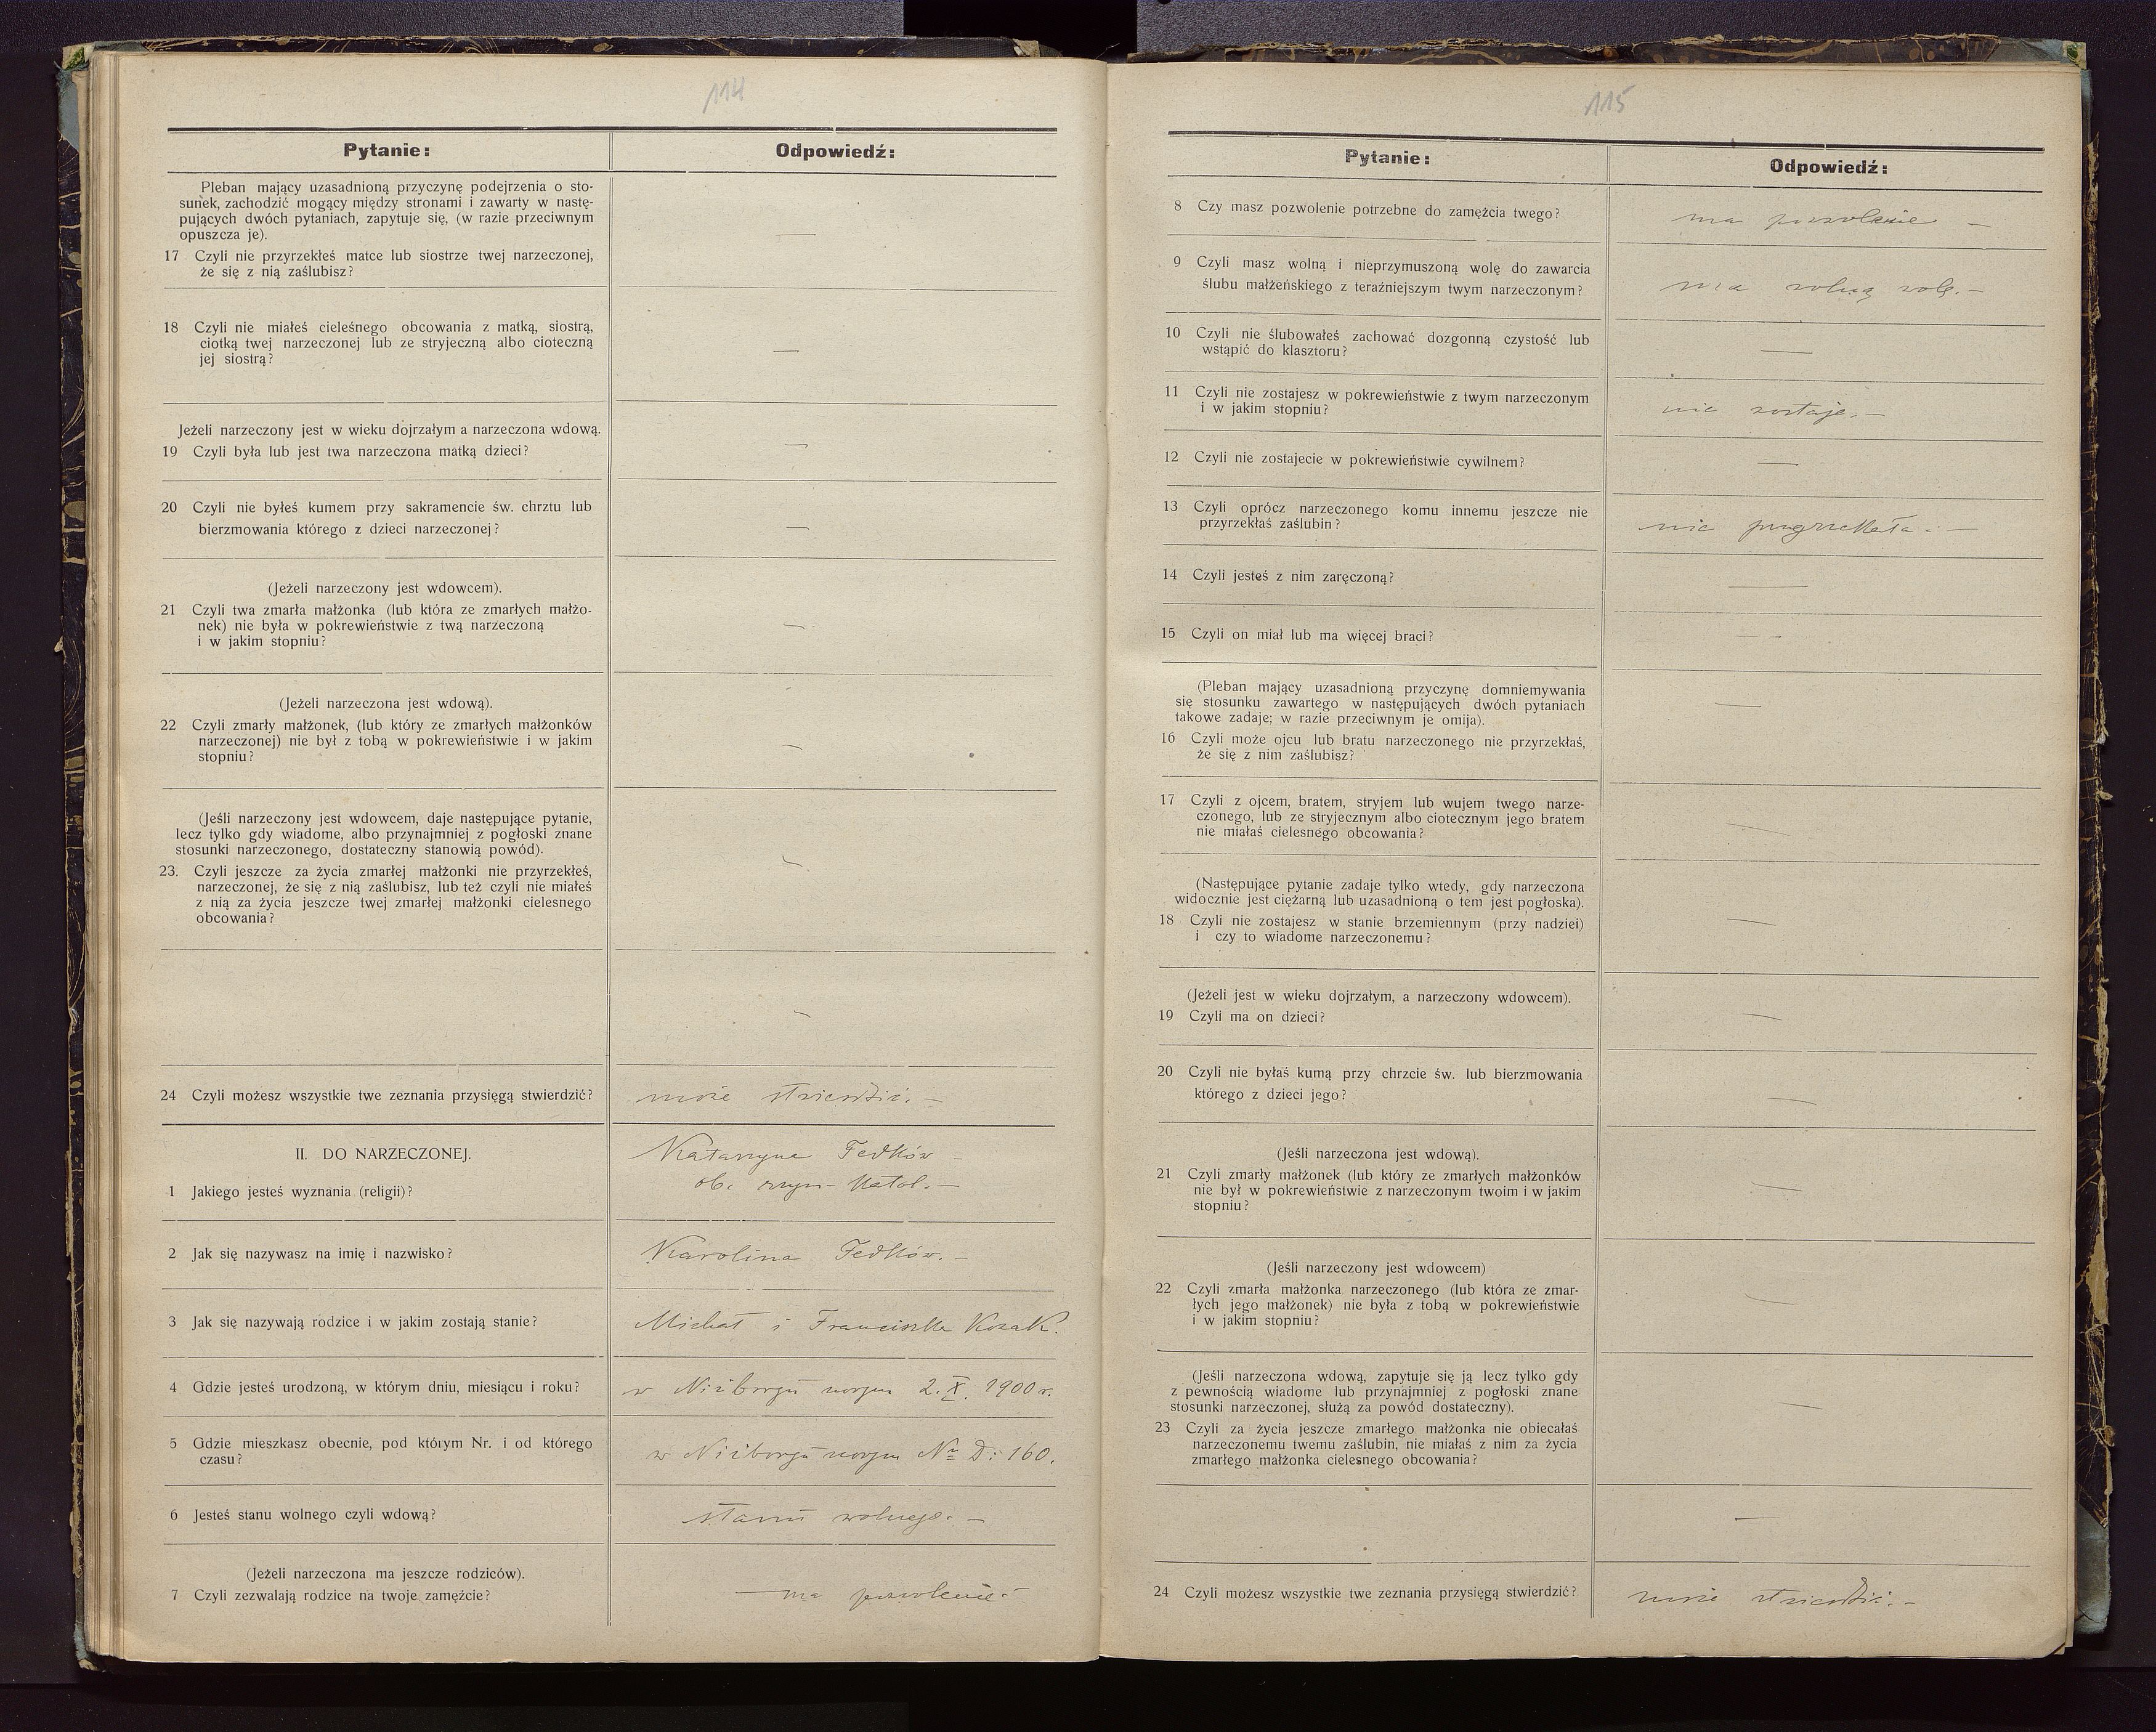 114
Pytanie:
Odpowiedź:
Pleban mający uzasadnioną przyczynę podejrzenia o sto-
sunek, zachodzić mogący między stronami i zawarty w nastę-
pujących dwóch pytaniach, zapytuje się, (w razie przeciwnym
opuszcza je).
—
17 Czyli nie przyrzekłeś matce lub siostrze twej narzeczonej,
że się z nią zaślubisz?
18 Czyli nie miałeś cieleśnego obcowania z matką, siostrą,
ciotką twej narzeczonej lub ze stryjeczną albo cioteczną
jej siostrą?
—
Jeżeli narzeczony jest w wieku dojrzałym a narzeczona wdową.
19 Czyli była lub jest twa narzeczona matką dzieci?
—
20 Czyli nie byłeś kumem przy sakramencie św. chrztu lub
bierzmowania którego z dzieci narzeczonej?
—
(Jeżeli narzeczony jest wdowcem).
21 Czyli twa zmarła małżonka (lub która ze zmarłych małżo-
nek) nie była w pokrewieństwie z twą narzeczoną
i w jakim stopniu?
—
(Jeżeli narzeczona jest wdową).
22 Czyli zmarły małżonek, (lub który ze zmarłych małżonków
narzeczonej) nie był z tobą w pokrewieństwie i w jakim
stopniu?
—
(Jeśli narzeczony jest wdowcem, daje następujące pytanie,
lecz tylko gdy wiadome, albo przynajmniej z pogłoski znane
stosunki narzeczonego, dostateczny stanowią powód).
23. Czyli jeszcze za życia zmarłej małżonki nie przyrzekłeś,
narzeczonej, że się z nią zaślubisz, lub też czyli nie miałeś
z nią za życia jeszcze twej zmarłej małżonki cielesnego
obcowania?
—
—
24 Czyli możesz wszystkie twe zeznania przysięgą stwierdzić?
może stwierdzić. —
II. DO NARZECZONEJ.
Katarzyna Fedków —
1 Jakiego jesteś wyznania (religii)?
ob. rzym- katol. —
2 Jak się nazywasz na imię i nazwisko?
Karolina Fedków. —
3 Jak się nazywają rodzice i w jakim zostają stanie?
Michał i Franciszka Kozak.
4 Gdzie jesteś urodzoną, w którym dniu, miesiącu i roku?
w Niżborgu nowym 2. X. 1900 r.
5 Gdzie mieszkasz obecnie, pod którym Nr. i od którego
czasu?
w Niżborgu nowym Nr D: 160.
6 Jesteś stanu wolnego czyli wdową?
stanu wolnego. —
(Jeżeli narzeczona ma jeszcze rodziców).
7 Czyli zezwalają rodzice na twoje zamęźcie?
— ma pozwolenie —
115
Pytanie:
Odpowiedź:
8 Czy masz pozwolenie potrzebne do zamężcia twego?
ma pozwolenie —
9 Czyli masz wolną i nieprzymuszoną wolę do zawarcia
ślubu małżeńskiego z teraźniejszym twym narzeczonym?
ma wolną wolę. —
10 Czyli nie ślubowałeś zachować dozgonną czystość lub
wstąpić do klasztoru?
—
11 Czyli nie zostajesz w pokrewieństwie z twym narzeczonym
i w jakim stopniu?
nie zostaje. —
12 Czyli nie zostajecie w pokrewieństwie cywilnem?
—
13 Czyli oprócz narzeczonego komu innemu jeszcze nie
przyrzekłaś zaślubin?
nie przyrzekała. —
14 Czyli jesteś z nim zaręczoną?
—
15 Czyli on miał lub ma więcej braci?
—
(Pleban mający uzasadnioną przyczynę domniemywania
się stosunku zawartego w następujących dwóch pytaniach
takowe zadaje; w razie przeciwnym je omija).
—
16 Czyli może ojcu lub bratu narzeczonego nie przyrzekłaś,
że się z nim zaślubisz?
17 Czyli z ojcem, bratem, stryjem lub wujem twego narze-
czonego, lub ze stryjecznym albo ciotecznym jego bratem
nie miałaś cielesnego obcowania?
—
(Następujące pytanie zadaje tylko wtedy, gdy narzeczona
widocznie jest ciężarną lub uzasadnioną o tem jest pogłoska).
18 Czyli nie zostajesz w stanie brzemiennym (przy nadziei)
i czy to wiadome narzeczonemu?
—
(Jeżeli jest w wieku dojrzałym, a narzeczony wdowcem).
19 Czyli ma on dzieci?
—
20 Czyli nie byłaś kumą przy chrzcie św. lub bierzmowania
którego z dzieci jego?
—
(Jeśli narzeczona jest wdową).
21 Czyli zmarły małżonek (lub który ze zmarłych małżonków
nie był w pokrewieństwie z narzeczonym twoim i w jakim
stopniu?
—
(Jeśli narzeczony jest wdowcem)
22 Czyli zmarła małżonka narzeczonego (lub która ze zmar-
łych jego małżonek) nie była z tobą w pokrewieństwie
i w jakim stopniu?
—
(Jeśli narzeczona wdową, zapytuje się ją lecz tylko gdy
z pewnością wiadome lub przynajmniej z pogłoski znane
stosunki narzeczonej, służą za powód dostateczny).
—
23 Czyli za życia jeszcze zmarłego małżonka nie obiecałaś
narzeczonemu twemu zaślubin, nie miałaś z nim za życia
zmarłego małżonka cielesnego obcowania?
—
24 Czyli możesz wszystkie twe zeznania przysięgą stwierdzić?
może stwierdzić. —